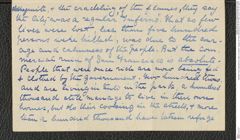 dynamite & the crackling of the flames, they say
the city was a regular inferno. That so few
lives were lost, less than five hundred
persons were killed, was due to the cour-
age and calmness of the people. But the com-
mercial ruin of San Francisco is absolute.
People that were once rich are now being fed
& clothed by the government. Two hundred thous-
and are living in tents in the parks, a hundred
thousand still manage to live in their own
homes, but do their cooking in the street, & more
than a hundred thousand have taken refuge